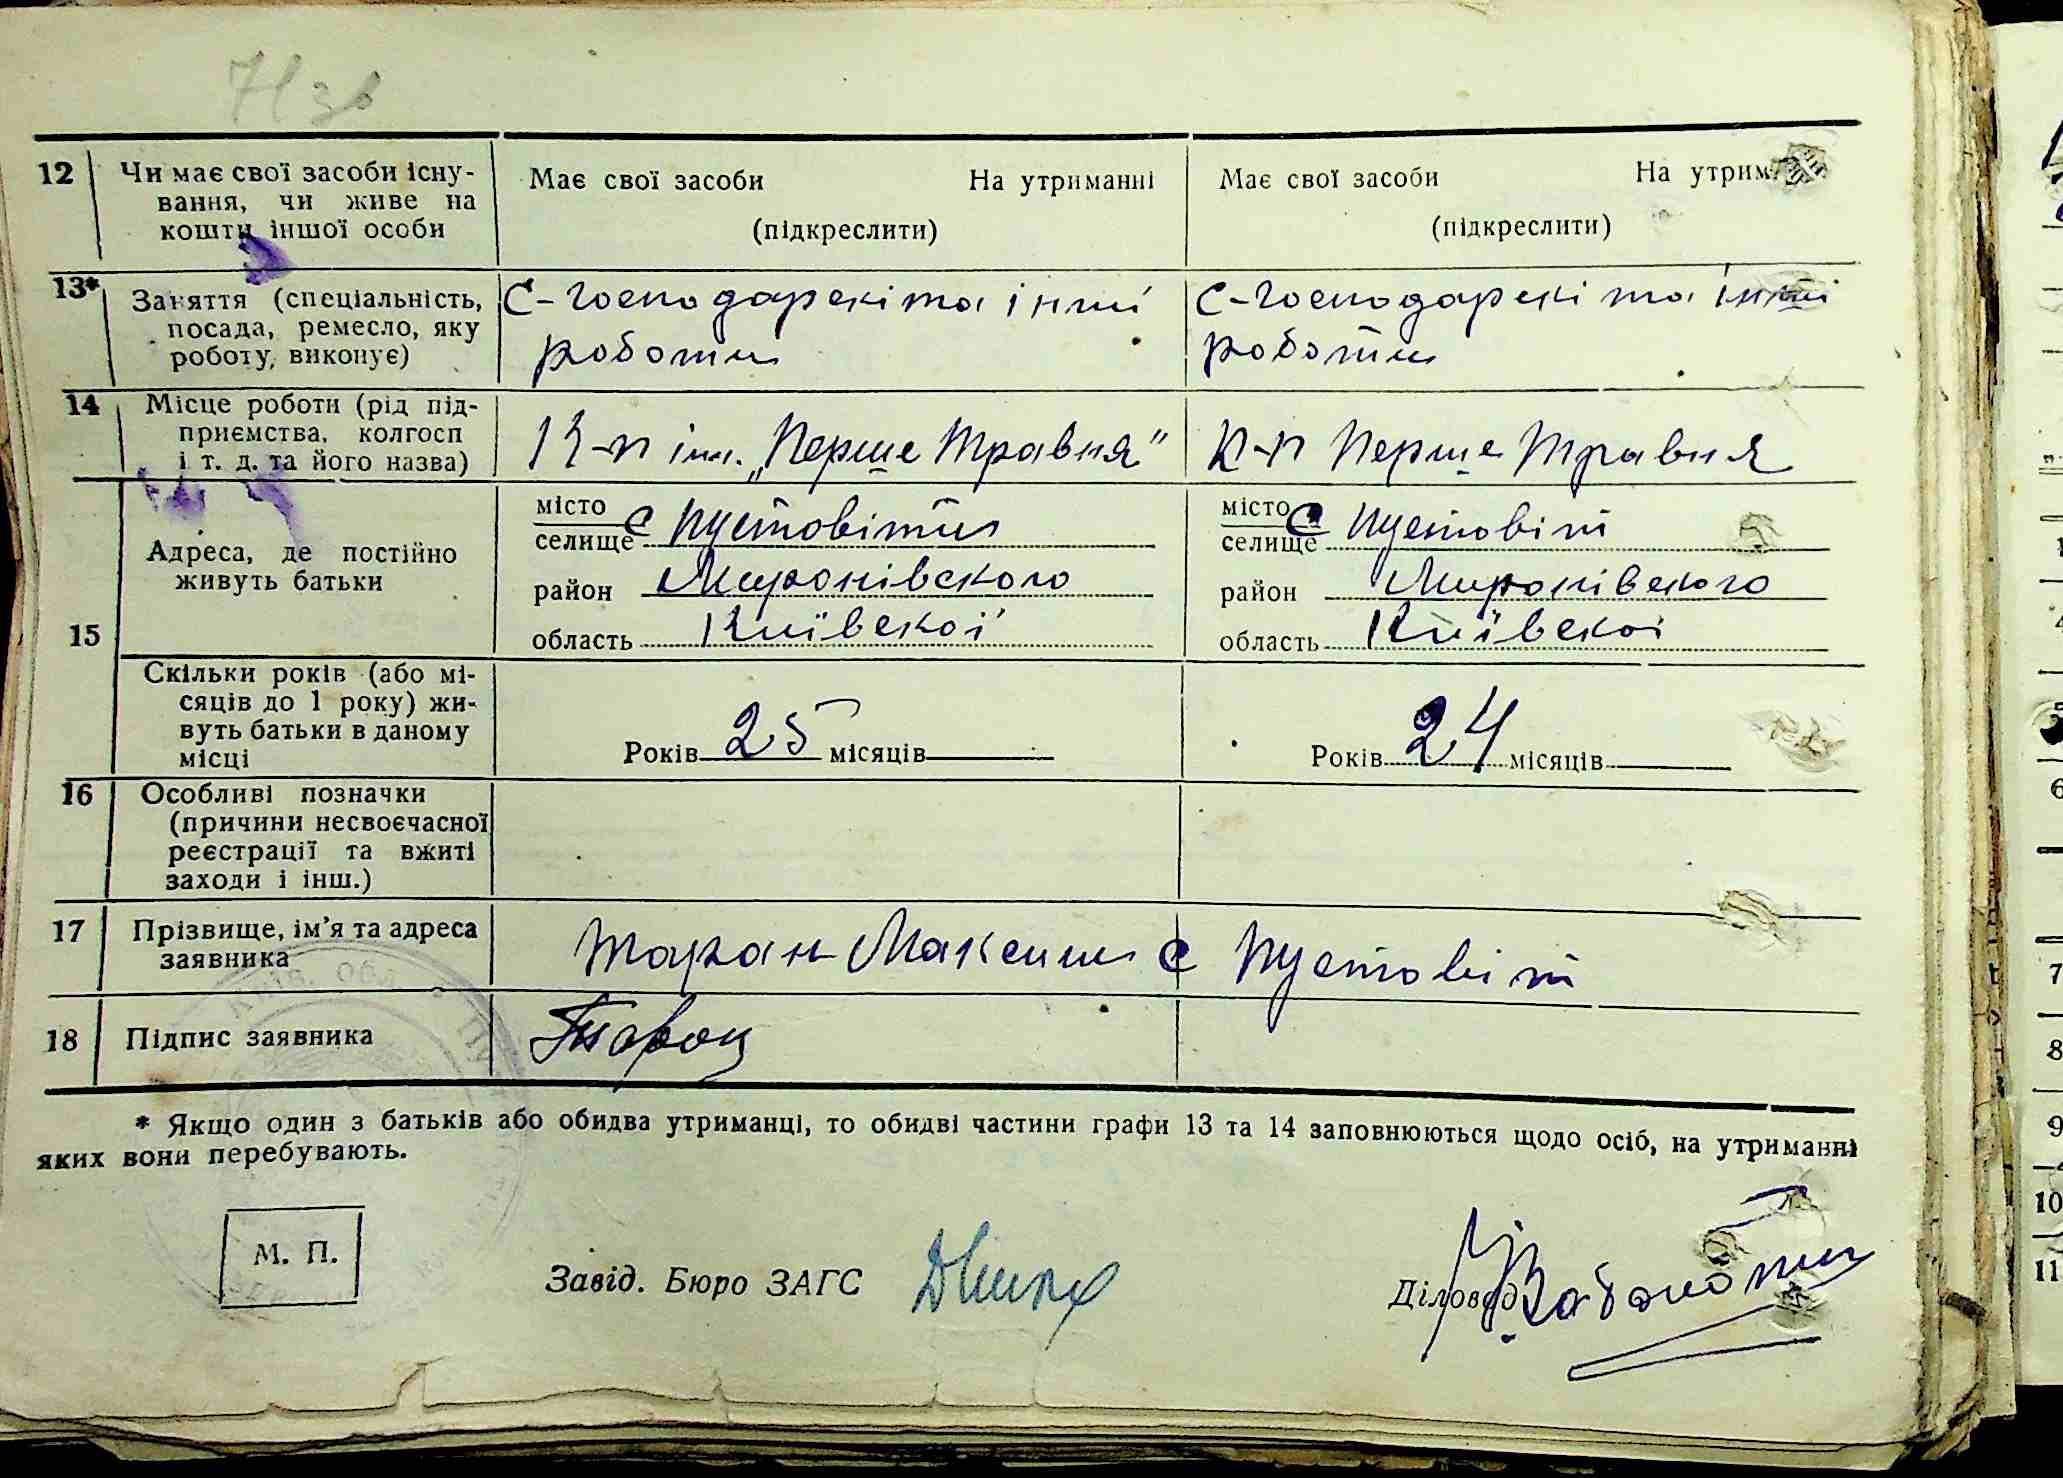 12 Чи має свої засоби існу-
вання, чи живе на
кошти іншої особи
Має свої засоби На утриманні
(підкреслити)
Має свої засоби На утрим
(підкреслити)
13* Заняття (спеціальність,
посада, ремесло, яку
роботу, виконує)
С-господарскі та інші
роботи
С-господарскі та інші
роботи
14 Місце роботи (рід під-
приємства, колгосп
і т. д. та його назва)
К-п ім. „Перше Травня"
К-п Перше Травня
15 Адреса, де постійно
живуть батьки
місто
селище с Пустовіти
район Миронівського
область Київскої
місто
селище с Пустовіт
район Миронівского
область Київскої
Скільки років (або мі-
сяців до 1 року) жи-
вуть батьки в даному
місці
Років 25 місяців
Років 24 місяців
16 Особливі позначки
(причини несвоєчасної
реєстрації та вжиті
заходи і інш.)
17 Прізвище, ім'я та адреса
заявника
Таран Максим с Пустовіт
18 Підпис заявника
Таран
* Якщо один з батьків або обидва утриманці, то обидві частини графи 13 та 14 заповнюються щодо осіб, на утриманні
яких вони перебувають.
М. П.
Завід. Бюро ЗАГС
Діловод
6
7
8
9
10
11